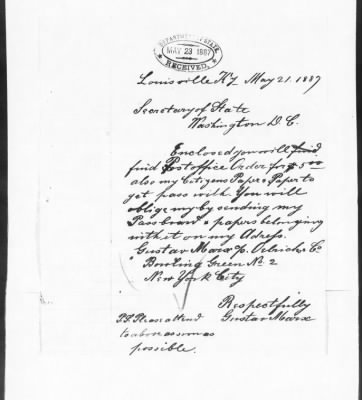 DEPARTMENT OF STATE
MAY 23 1887
RECEIVED.
Louisville Ky May 21. 1887
Secretary of State
Washington D C.
Enclosed you will find
find Postoffice Order for $ 5 00
also my Citizens Papers Paper to
get pass with You will
oblige my by sending my
Pass & papers belonging
with it on my Adress.
Gustav Marx p. Oelrichs Co
Bowling Green No 2
New York City
Respectfully
Gustav Marx
P.S. Please attend
to above as soon as
possible.